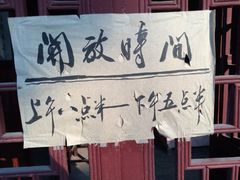 開放時間
上午八点半——下午五点半